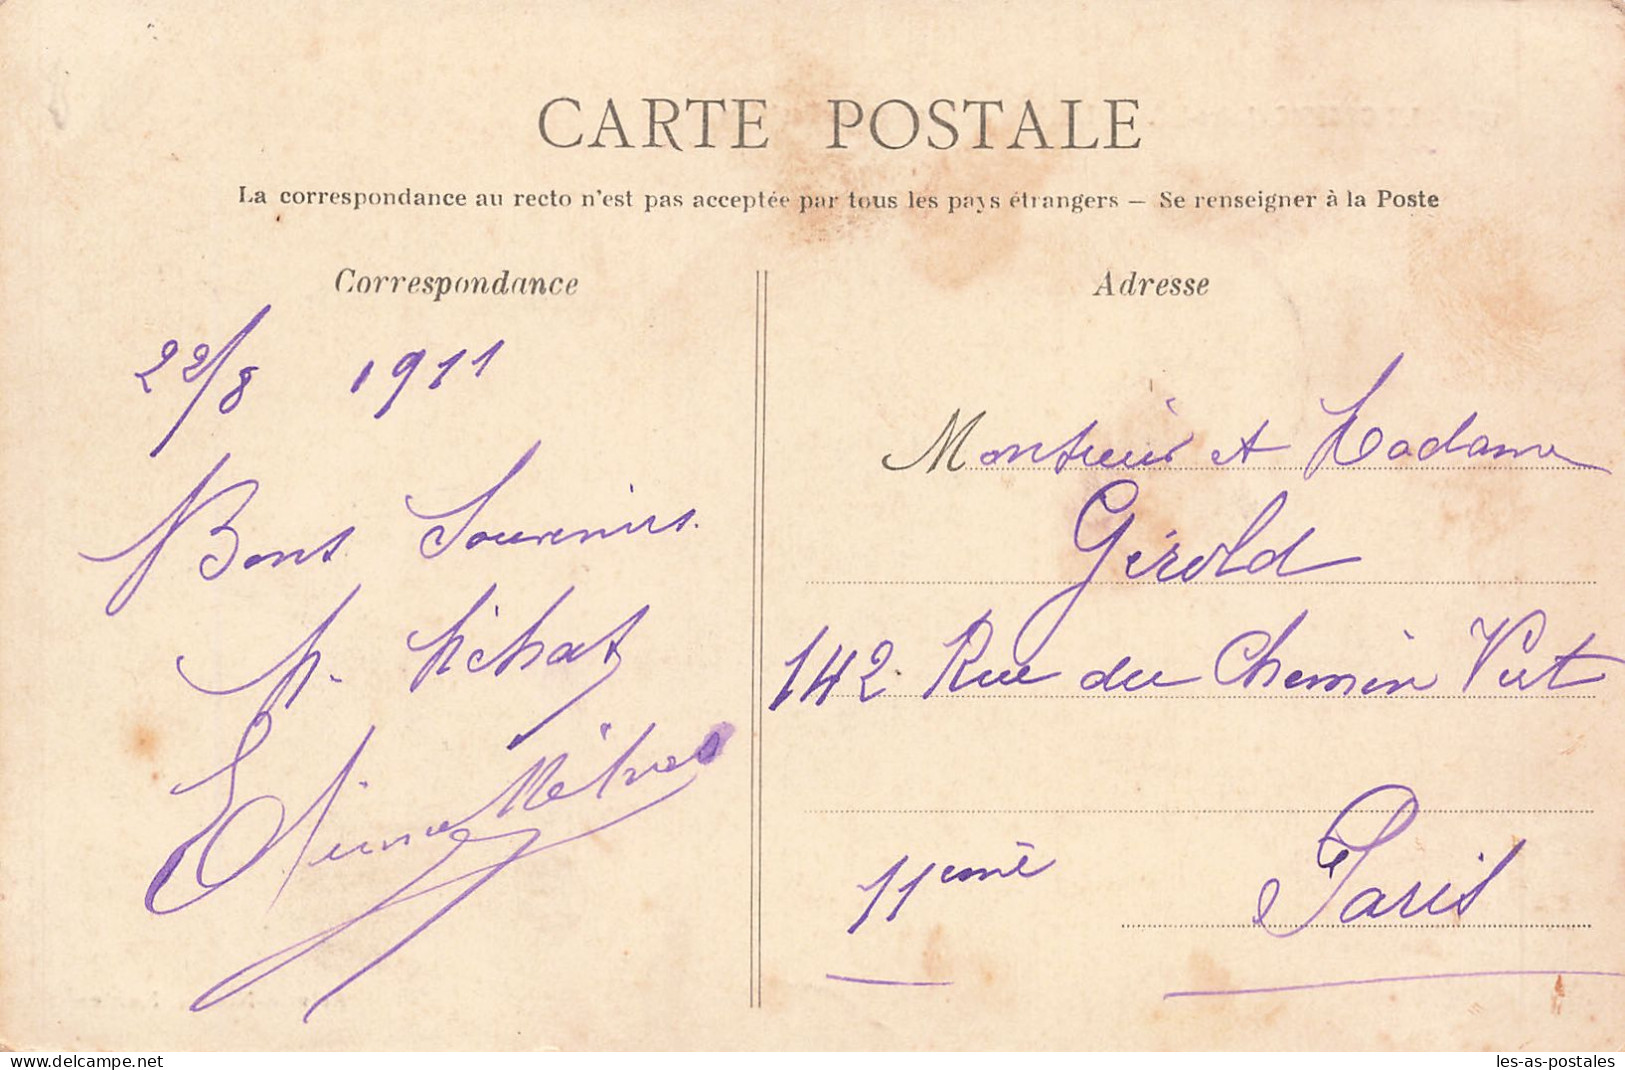 CARTE POSTALE
La correspondance au recto n'est pas acceptée par tous les pays étrangers – Se renseigner à la Poste
Correspondance
22/8 1911
Bons Souvenirs
Adresse
Monsieur et Madame
Gérold
142 Rue du Chemin Vert
11eme Paris
www.delcampe.net
les-as-postales